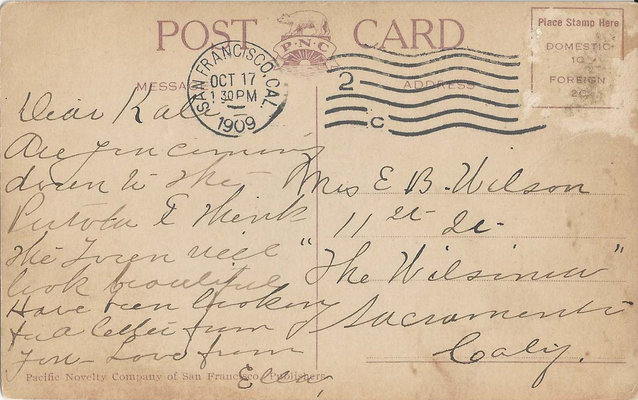 POST CARD
P·N·C
Place Stamp Here
DOMESTIC
1C
FOREIGN
2C
SAN FRANCISCO, CAL.
OCT 17
1 30 PM
1909
2
C
MESSA
ADDRESS
Dear Kate
Are you coming
down to the
Portola I think
the Town will
look beautiful
Have been looking
for a letter from
you - Love from
Mrs E B. Wilson
11 st
"The Wilsonia"
Sacramento
Calif.
Pacific Novelty Company of San Francisco, Publishers